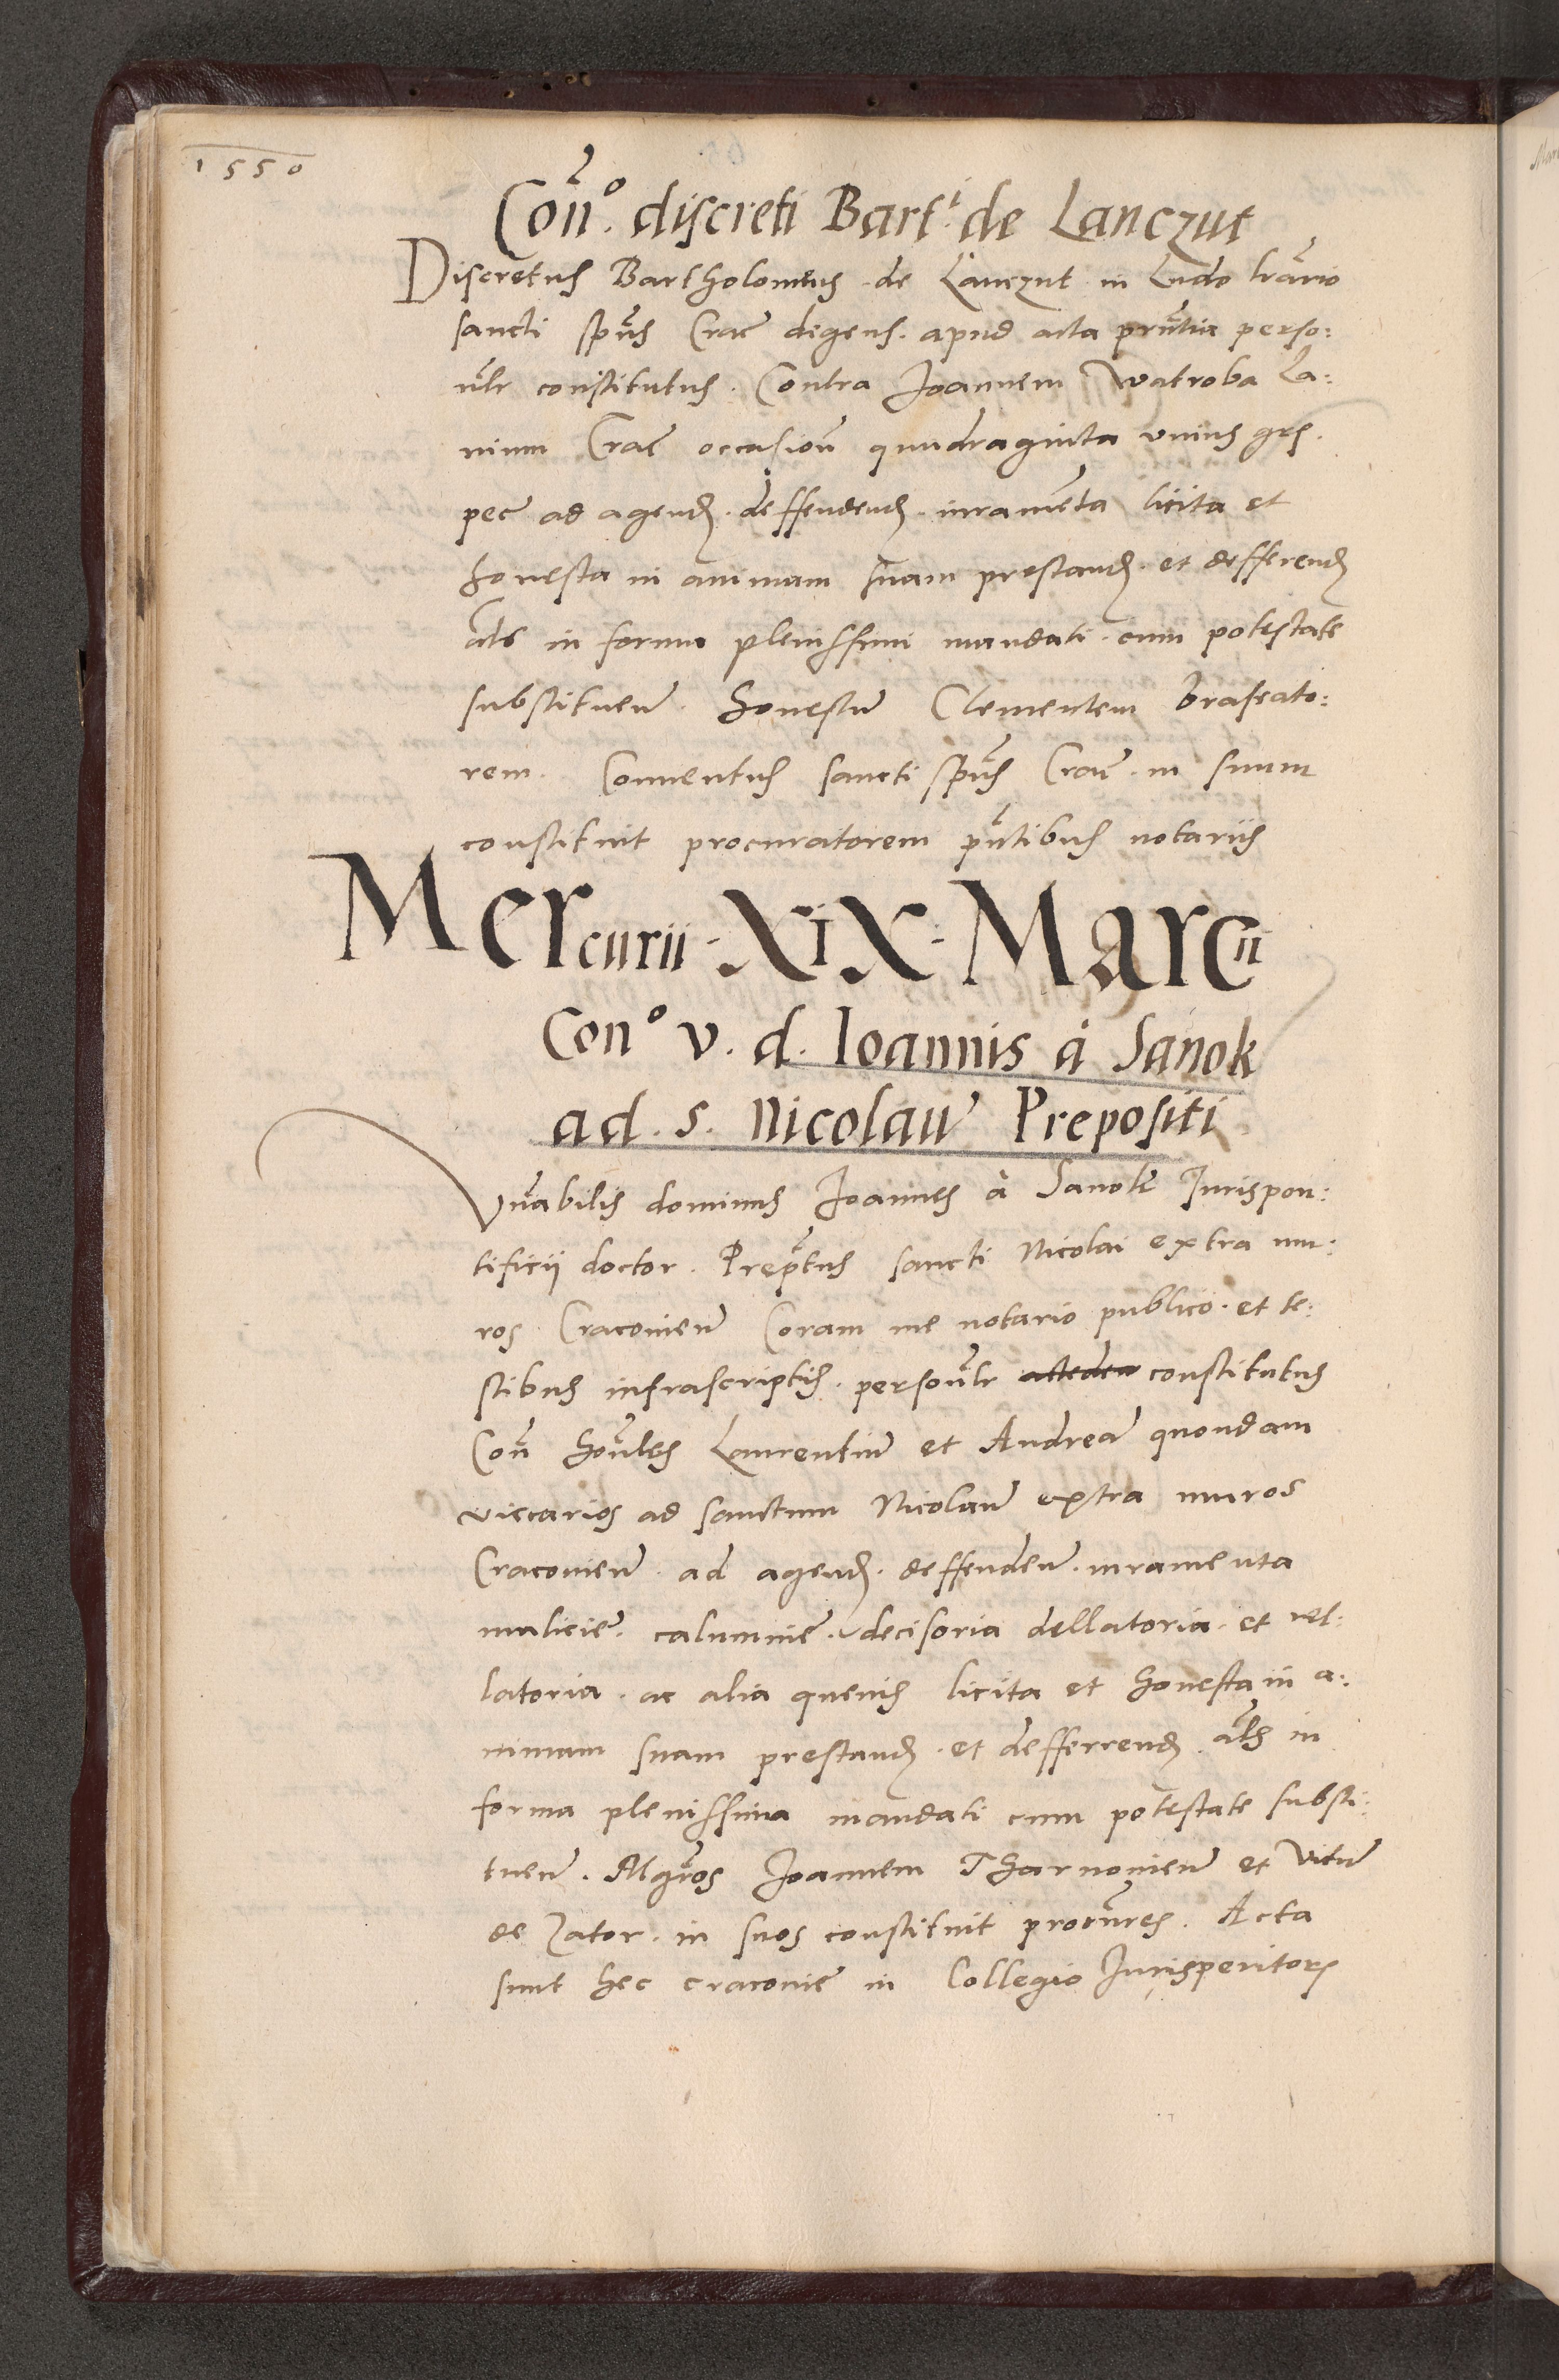 1550
Con̄o. discreti Bart.i de Lanczut
Discretus Bartholomeus de Lanczut in Ludo lrārio
sancti spūs Crac̄ degens. apud acta prn̄tia perso:
nl̄r constitutus. Contra Joannem Watroba La:
nium Crac̄ occasion̄ quadraginta unius grs.
pec̄ ad agend̄. deffendend̄. iuramēta licita et
honesta in animam suam prestand̄. et defferend̄
als̄ in forma plenissimi mandati. cum potestate
substituen̄. honestū Clementem braseato:
rem. Conuentus sancti spūs Crac̄. in suum
constituit procuratorem prn̄tibus notariis
Mercurii XIX Marcii
Cono v. d. Ioannis à Sanok
ad. s. Nicolaū Prepositi
Vnābilis dominus Joannes à Sanok Jurispon:
tificii doctor. Prept̄us sancti Nicolai extra mu:
ros Cracouien̄ Coram me notario publico. et te:
stibus infrascriptis. personl̄r constitutus
Con̄ honl̄es Laurentiū et Andreā quondam
viccarios ad sanctum Nicolaū extra muros
Cracouien̄. ad agend̄. deffenden̄. iuramenta
maliciē. calumniē. decisoria dellatoria. et rel:
latoria. ac alia queuis licita et honesta in a:
nimam suam prestand̄. et defferrend̄. als̄ in
forma plenissima mandati cum potestate substi:
tuen̄. Mgr̄os Joannem Tharnouien̄ et Vitū
de Zator. in suos constituit procūres. Acta
sunt hec cracouiē in Collegio Jurisperitorꝝ